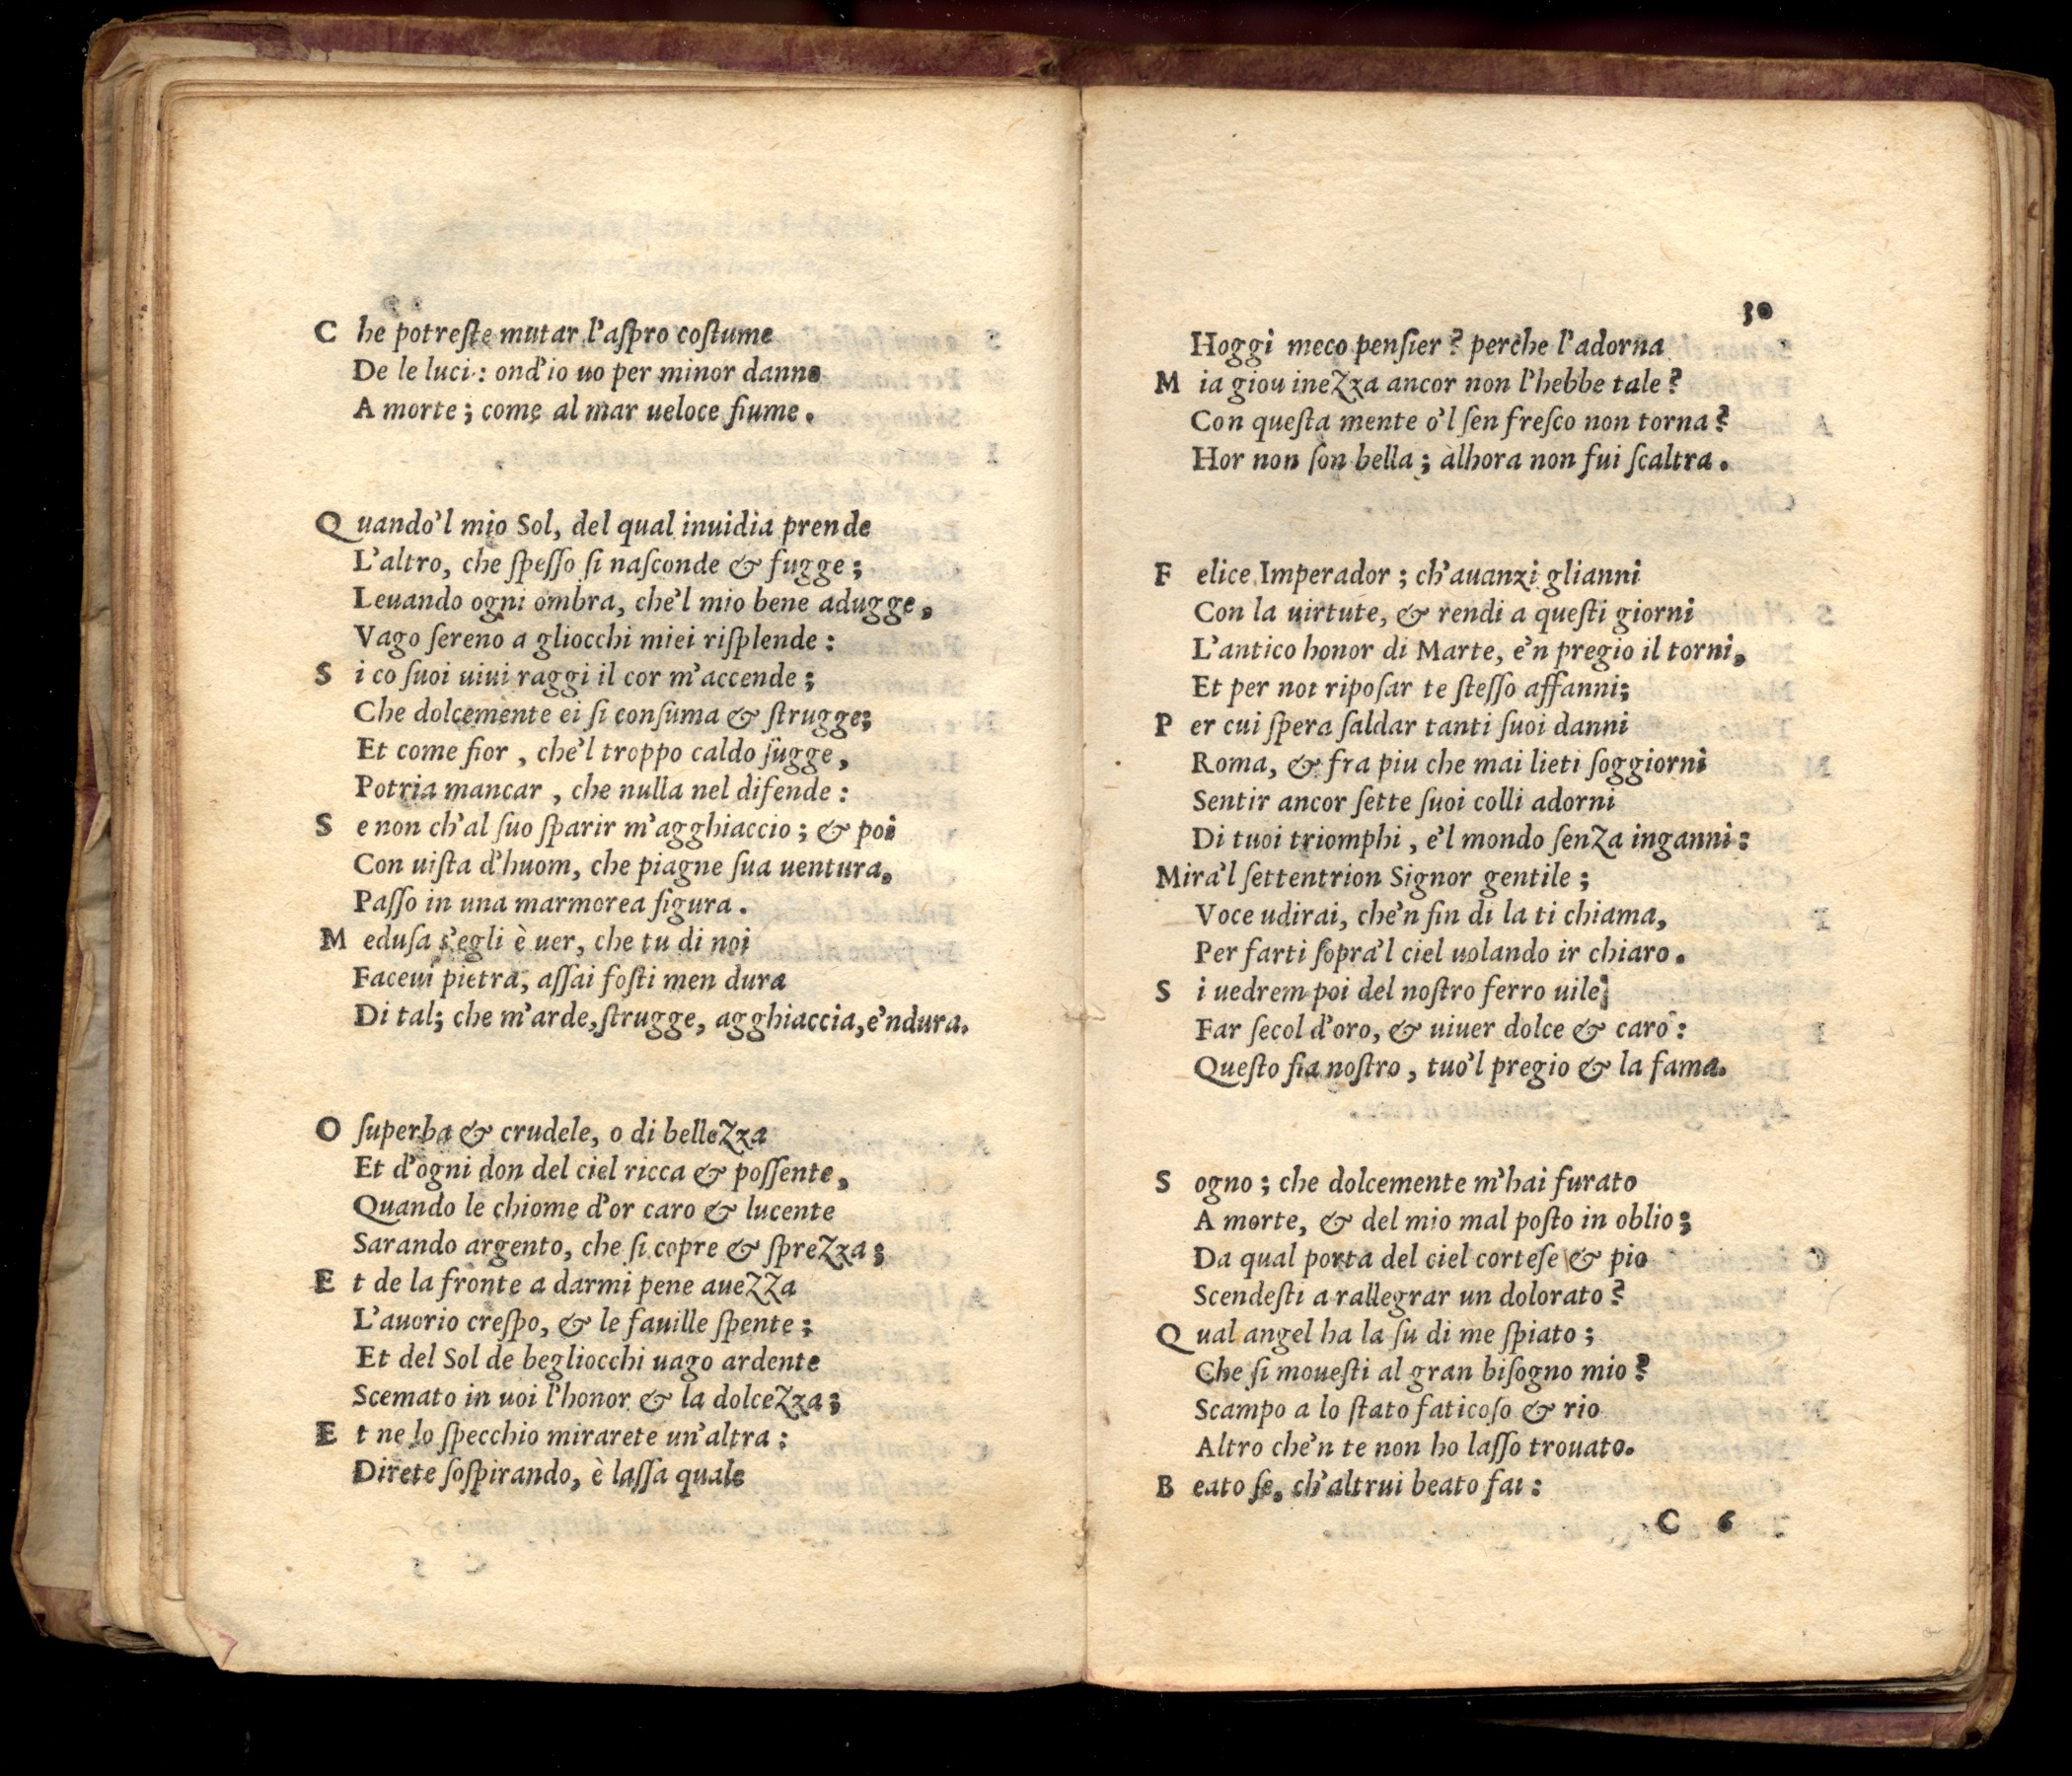 C he potreſte mutar l'aſpro coſtume
De le luci: ond'io uo per minor danno
A morte; come al mar ueloce fiume.
Q uando'l mio Sol, del qual inuidia prende
L'altro, che ſpeſſo ſi naſconde & fugge;
Leuando ogni ombra, che'l mio bene adugge,
Vago ſereno a gliocchi miei riſplende:
S i co ſuoi uiui raggi il cor m'accende;
Che dolcemente ei ſi conſuma & ſtrugge;
Et come fior, che'l troppo caldo ſugge,
Potria mancar, che nulla nel difende:
S e non ch'al ſuo ſparir m'agghiaccio; & poi
Con uiſta d'huom, che piagne ſua uentura,
Paſſo in una marmorea figura.
M eduſa s'egli è uer, che tu di noi
Faceui pietra, aſſai foſti men dura
Di tal; che m'arde, ſtrugge, agghiaccia, e'ndura.
O ſuperba & crudele, o di belleZza
Et d'ogni don del ciel ricca & poſſente,
Quando le chiome d'or caro & lucente
Sarando argento, che ſi copre & ſpreZza;
E t de la fronte a darmi pene aueZZa
L'auorio creſpo, & le fauille ſpente;
Et del Sol de begliocchi uago ardente
Scemato in uoi l'honor & la dolceZza;
E t ne lo ſpecchio mirarete un'altra:
Direte ſoſpirando, è laſſa quale
30
Hoggi meco penſier? perche l'adorna
M ia giouineZza ancor non l'hebbe tale?
Con queſta mente o'l ſen freſco non torna?
Hor non ſon bella; àlhora non fui ſcaltra.
F elice Imperador; ch'auanzi glianni
Con la uirtute, & rendi a queſti giorni
L'antico honor di Marte, e'n pregio il torni,
Et per noi ripoſar te ſteſſo affanni;
P er cui ſpera ſaldar tanti ſuoi danni
Roma, & fra piu che mai lieti ſoggiorni
Sentir ancor ſette ſuoi colli adorni
Di tuoi triomphi, e'l mondo ſenZa inganni:
Mira'l ſettentrion Signor gentile;
Voce udirai, che'n fin di la ti chiama,
Per farti ſopra'l ciel uolando ir chiaro.
S i uedrem poi del noſtro ferro uile;
Far ſecol d'oro, & uiuer dolce & caro:
Queſto fia noſtro, tuo'l pregio & la fama.
S ogno; che dolcemente m'hai furato
A morte, & del mio mal poſto in oblio;
Da qual porta del ciel corteſe & pio
Scendeſti a rallegrar un dolorato?
Q ual angel ha la ſu di me ſpiato;
Che ſi moueſti al gran biſogno mio?
Scampo a lo ſtato faticoſo & rio
Altro che'n te non ho laſſo trouato.
B eato ſe, ch'altrui beato fai:
C 6